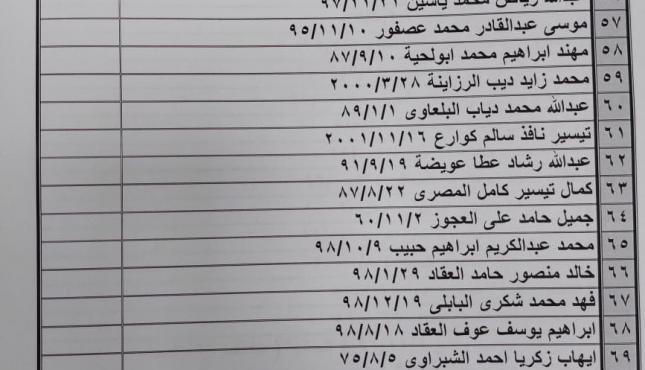 عبدالله رياض محمد ياسين ٩٧/١١/٢١
٥٧ موسى عبدالقادر محمد عصفور ٩٥/١١/١٠
٥٨ مهند ابراهيم محمد ابولحية ٨٧/٩/١٠
٥٩ محمد زايد ديب الرزاينة ٢٠٠٠/٣/٢٨
٦٠ عبدالله محمد دياب البلعاوى ٨٩/١/١
٦١ تيسير نافذ سالم كوارع ٢٠٠١/١١/١٦
٦٢ عبدالله رشاد عطا عويضة ٩١/٩/١٩
٦٣ كمال تيسير كامل المصرى ٨٧/٨/٢٢
٦٤ جميل حامد على العجوز ٦٠/١١/٢
٦٥ محمد عبدالكريم ابراهيم حبيب ٩٨/١٠/٩
٦٦ خالد منصور حامد العقاد ٩٨/١/٢٩
٦٧ فهد محمد شكرى البابلى ٩٨/١٢/١٩
٦٨ ابراهيم يوسف عوف العقاد ٩٨/٨/١٨
٦٩ ايهاب زكريا احمد الشبراوى ٧٥/٨/٥